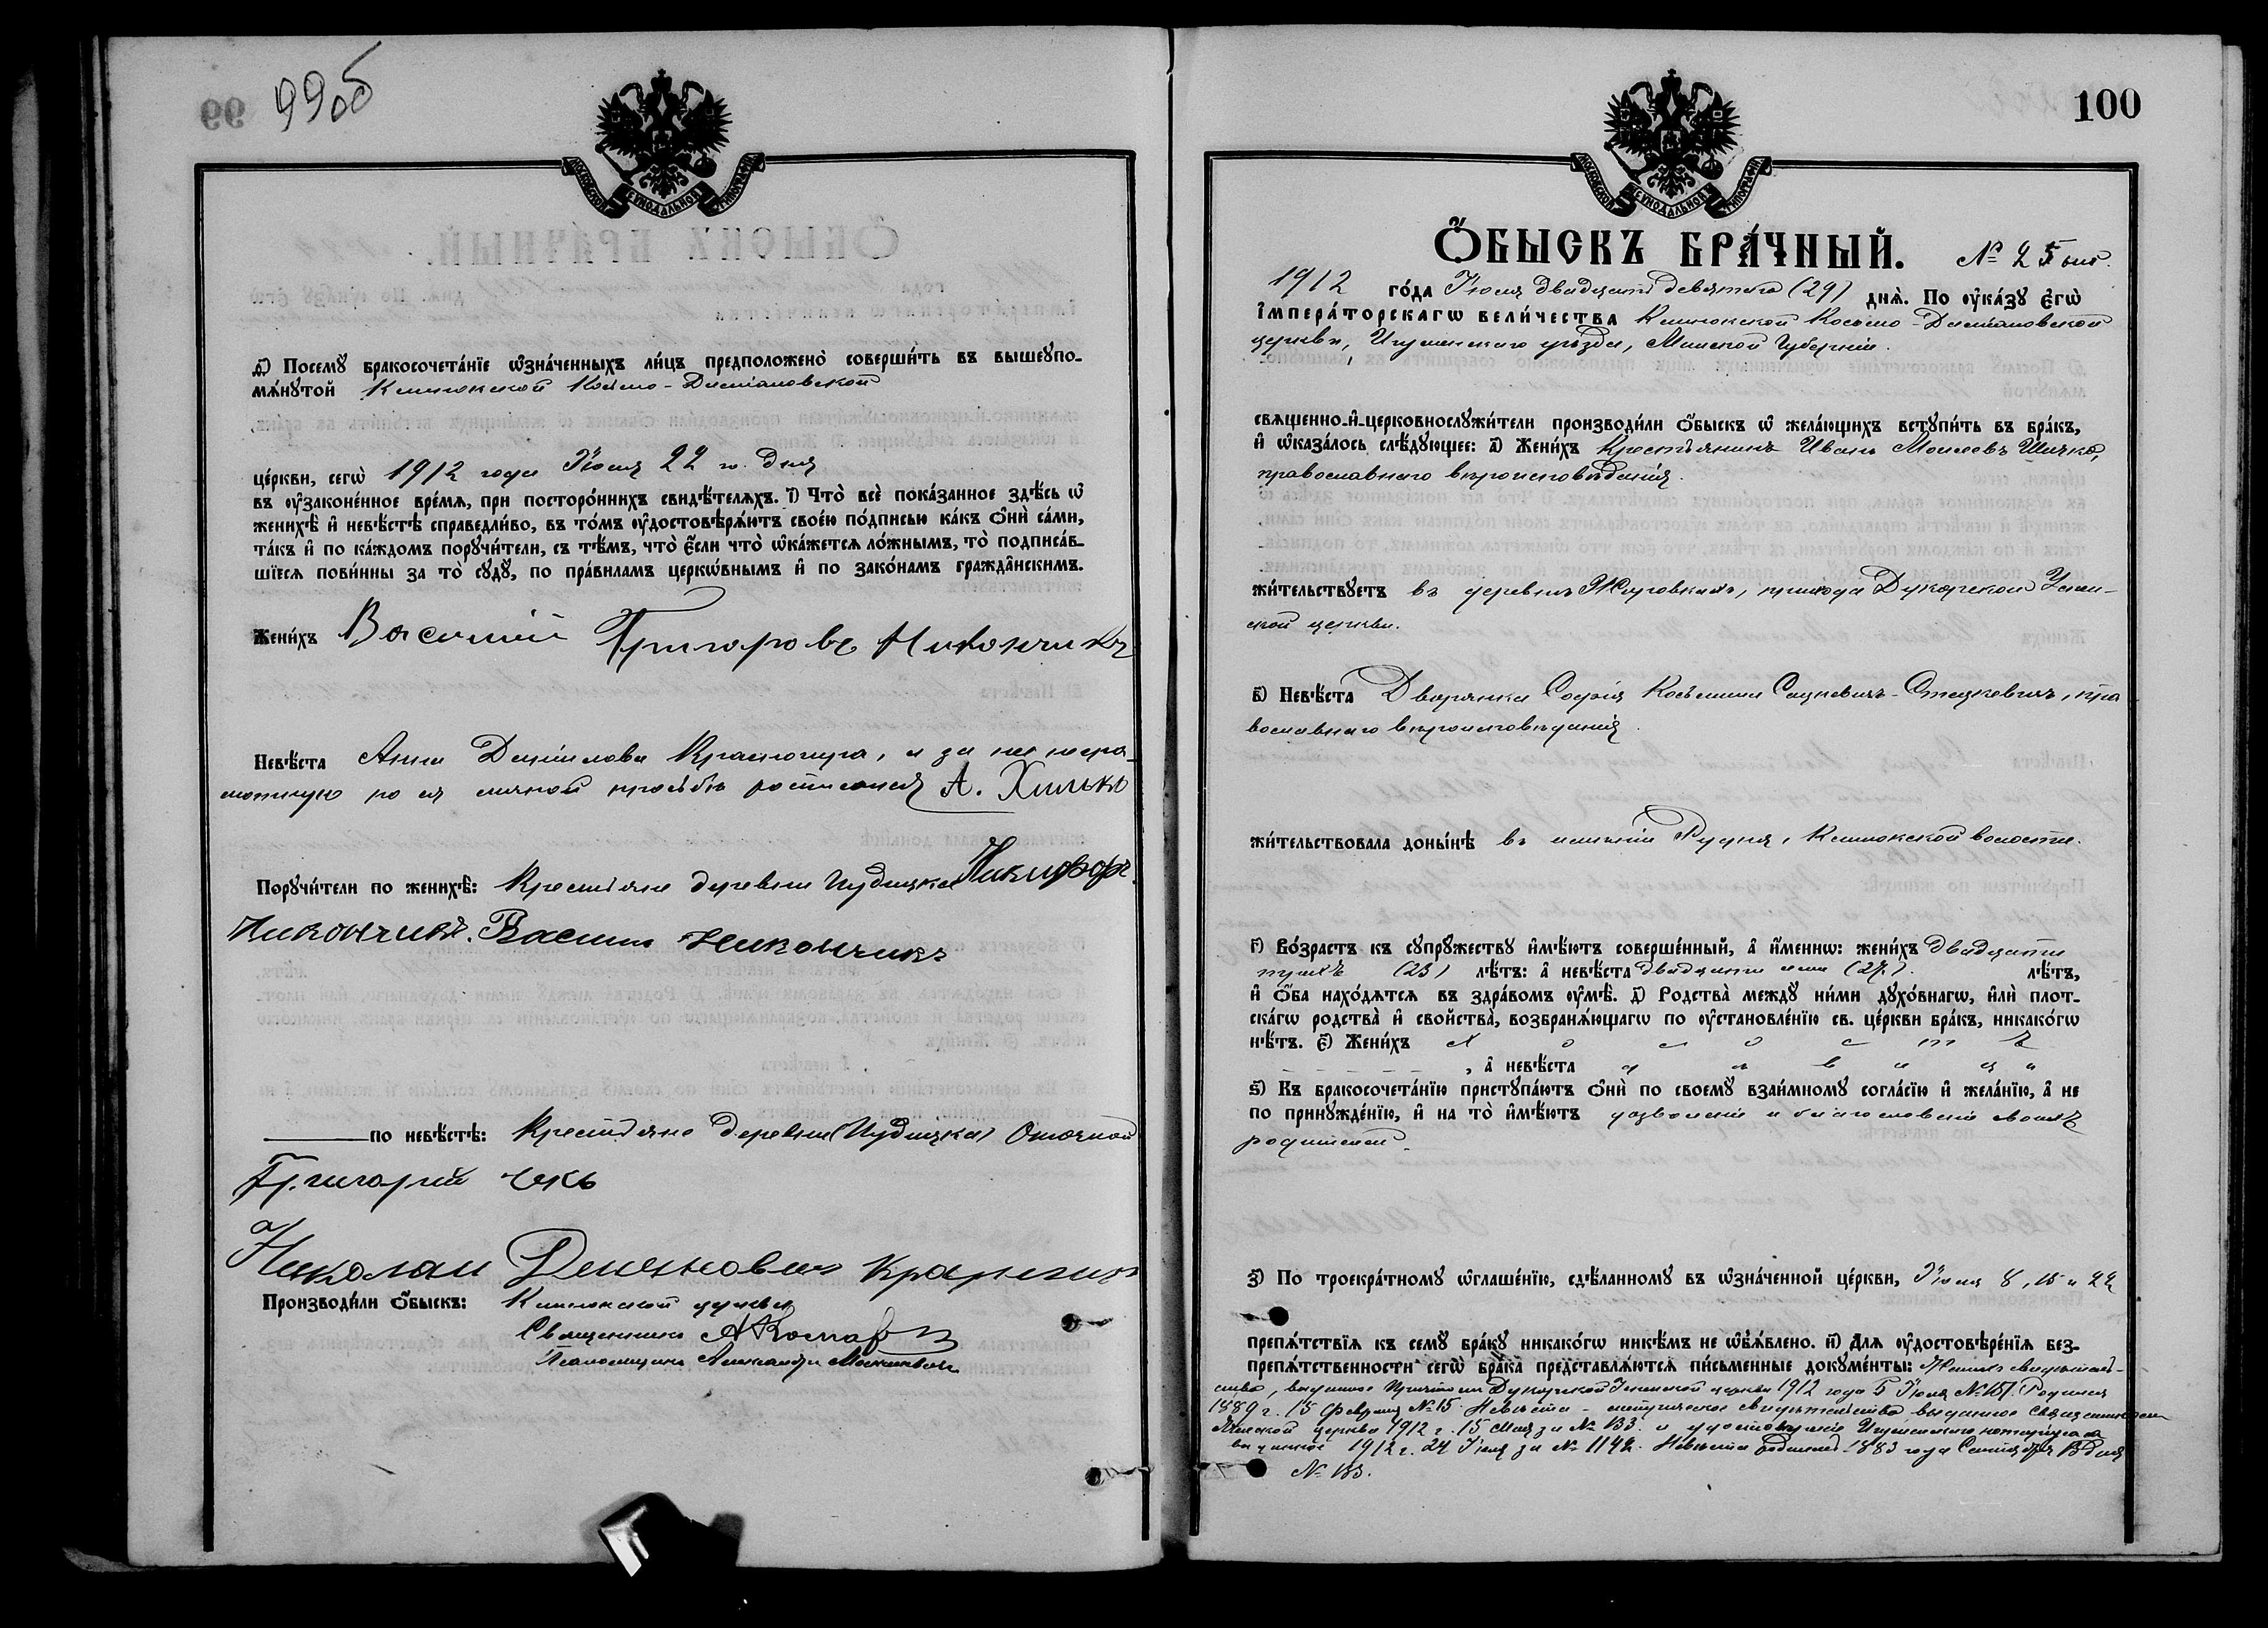 99
99об
МОСКОВСКОЙ СѴНОДАЛЬНОЙ ТИПОГРАФІИ
д҃) Посемꙋ̀ бракосочета́нїе ѡ҆зна́ченныхъ ли́цъ предположено̀ соверши́ть въ вышеꙋпо-
мѧ́нꙋтой Клинокской Косьмо-Даміановской
це́ркви, сегѡ̀ 1912 года Іюля 22 го дня
въ ᲂу҆зако́ненное вре́мѧ, при посторо́ннихъ свидѣ́телѧхъ. і҃) Что̀ всѐ пока́занное здѣ́сь ѡ҆
женихѣ̀ и҆ невѣ́стѣ справедли́во, въ то́мъ ᲂу҆достовѣрѧ́ютъ свое́ю по́дписью ка́къ ѻ҆нѝ са́ми,
та́къ и҆ по ка́ждомъ порꙋчи́тели, съ тѣ́мъ, что̀ є҆́сли что̀ ѡ҆ка́жетсѧ ло́жнымъ, то̀ подписа́в-
шїесѧ пови́нны за то̀ сꙋдꙋ̀, по пра́виламъ церкѡ́внымъ и҆ по зако́намъ гражда́нскимъ.
Жени́хъ Василий Григоровъ Никончикъ
Невѣ́ста Анна Даніилова , а за не негра-
мотную по ея личной просьбѣ росписался А. Хилько
Порꙋчи́тели по женихѣ̀: Крестьяне деревни Никифоръ
Никончикъ. Василь Никончикъ
по невѣ́стѣ: Крестьяне деревни
Григорий
Николаи
Производи́ли ѻ҆́быскъ: Клинокской церкви
Священникъ АКомар
Псаломщикъ Александръ
100
МОСКОВСКОЙ СѴНОДАЛЬНОЙ ТИПОГРАФІИ
Ѻ҆́БЫСКЪ БРА́ЧНЫЙ. № 25
1912 го́да Іюля двадцать девятаго (29) днѧ̀. По ᲂу҆ка́зꙋ є҆гѡ̀
і҆мпера́торскагѡ вели́чества Клинокской Косьмо-Даміановской
церкви, Игуменскаго уѣзда, Минской Губерніи.
свѧще́нно-и҆-церковнослꙋжи́тели производи́ли ѻ҆́быскъ ѡ҆ жела́ющихъ встꙋпи́ть въ бра́къ,
и҆ ѡ҆каза́лось слѣ́дꙋющее: а҃) Жени́хъ Крестьянинъ Иванъ Моисеевъ Шичко,
православнаго вѣроисповѣданія.
жи́тельствꙋетъ въ деревнѣ Жоровкахъ, прихода Дукорской Успен-
ской церкви.
в҃) Невѣ́ста Дворянка Софія Косьмина Сацкевичъ-Стацкевичъ, пра
вославнаго вѣроисповѣданія.
жи́тельствовала доны́нѣ въ имѣніи Рудня, Клинокской волости.
г҃) Во́зрастъ къ сꙋпрꙋ́жествꙋ и҆мѣ́ютъ соверше́нный, а҆ и҆́меннѡ: жени́хъ двадцати
трехъ (23) лѣ́тъ: а҆ невѣ́ста двадцати (27.) лѣ́тъ,
и҆ ѻ҆́ба нахо́дѧтсѧ въ здра́вомъ ᲂу҆мѣ̀. д҃) Родства̀ междꙋ̀ ни́ми дꙋхо́внагѡ, и҆лѝ плот-
ска́гѡ родства̀ и҆ свойства̀, возбранѧ́ющагѡ по ᲂу҆становле́нїю св. це́ркви бра́къ, никако́гѡ
нѣ́тъ. є҃) Жени́хъ холостъ
, а҆ невѣ́ста дѣвица
ѕ҃) Къ бракосочета́нїю пристꙋпа́ютъ ѻ҆нѝ по своемꙋ̀ взаи́мномꙋ согла́сїю и҆ жела́нїю, а҆ не
по принꙋжде́нїю, и҆ на то̀ и҆мѣ́ютъ дозволеніе и благословеніе своихъ
родителей.
з҃) По троекра́тномꙋ ѡ҆глаше́нїю, сдѣ́ланномꙋ въ ѡ҆зна́ченной це́ркви, Іюля 8, 15 и 22
препѧ́тствїѧ къ семꙋ̀ бра́кꙋ никако́гѡ никѣ́мъ не ѡ҆б̾ѧ́влено. и҃) Длѧ ᲂу҆достовѣре́нїѧ без-
препѧ́тственности сегѡ̀ бра́ка представлѧ́ютсѧ пи́сьменные докꙋме́нты: Жениха свидѣтель-
ство, выданное Причтомъ Дукорской Успенской церкви 1912 года 5 Іюля № 151. Родился
1889 г. 15 февраля № 15. Невѣста - метрическое свидѣтельство, выданное Священникомъ
церкви 1912 г. 15 Мая за № 133 и удостовѣреніе Игуменскаго нотаріуса
выданное 1912 г. 24 Іюля за № 1142. Невѣста родилась 1883 года Сентября дня
№ 133.